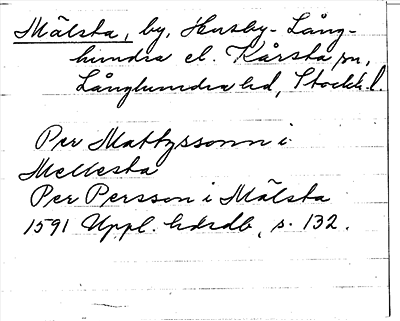 Mälsta, by, Husby-Lång-
hundra el. Kårsta sn,
Långhundra hd, Stockh. l.
Per Mattzssonn i
Mellesta
Per Persson i Mälsta
1591 Uppl. hdrdb, s. 132.